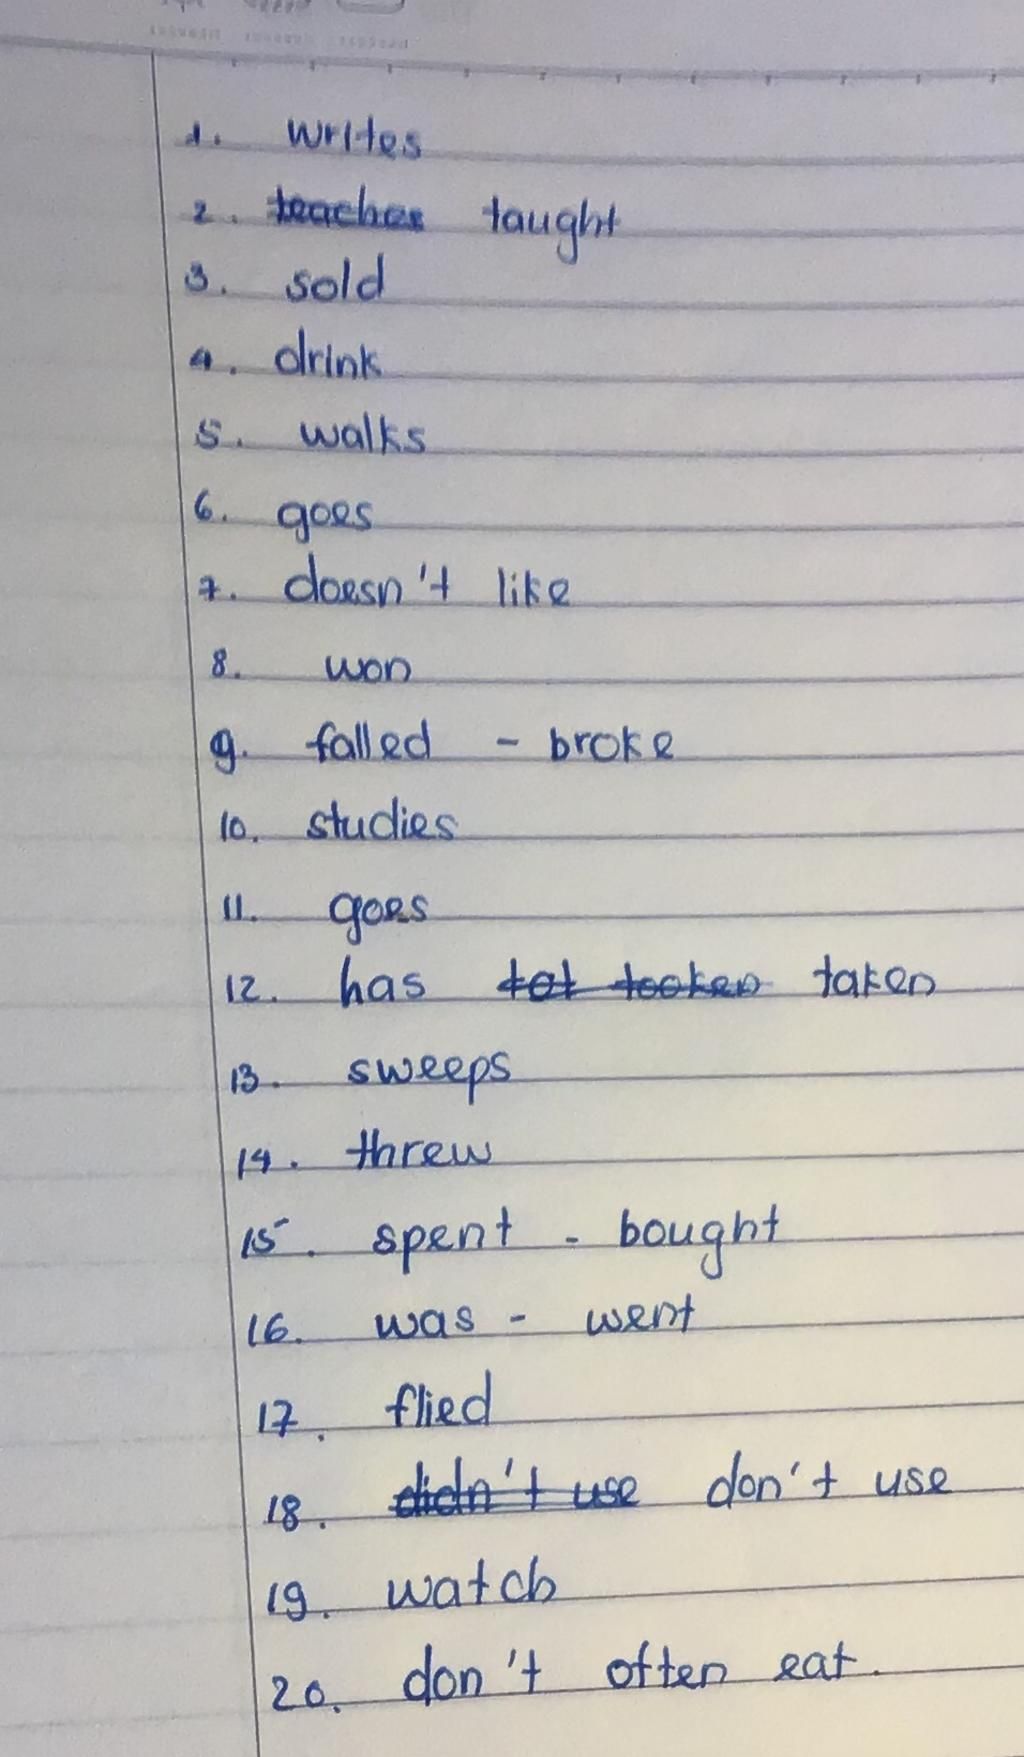 1. writes
2. teaches taught
3. sold
4. drink
5. walks
6. goes
7. doesn't like
8. won
9. falled - broke
10. studies
11. goes
12. has tot tooken taken
13. sweeps
14. threw
15. spent - bought
16. was - went
17. flied
18. didn't use don't use
19. watch
20. don't often eat.